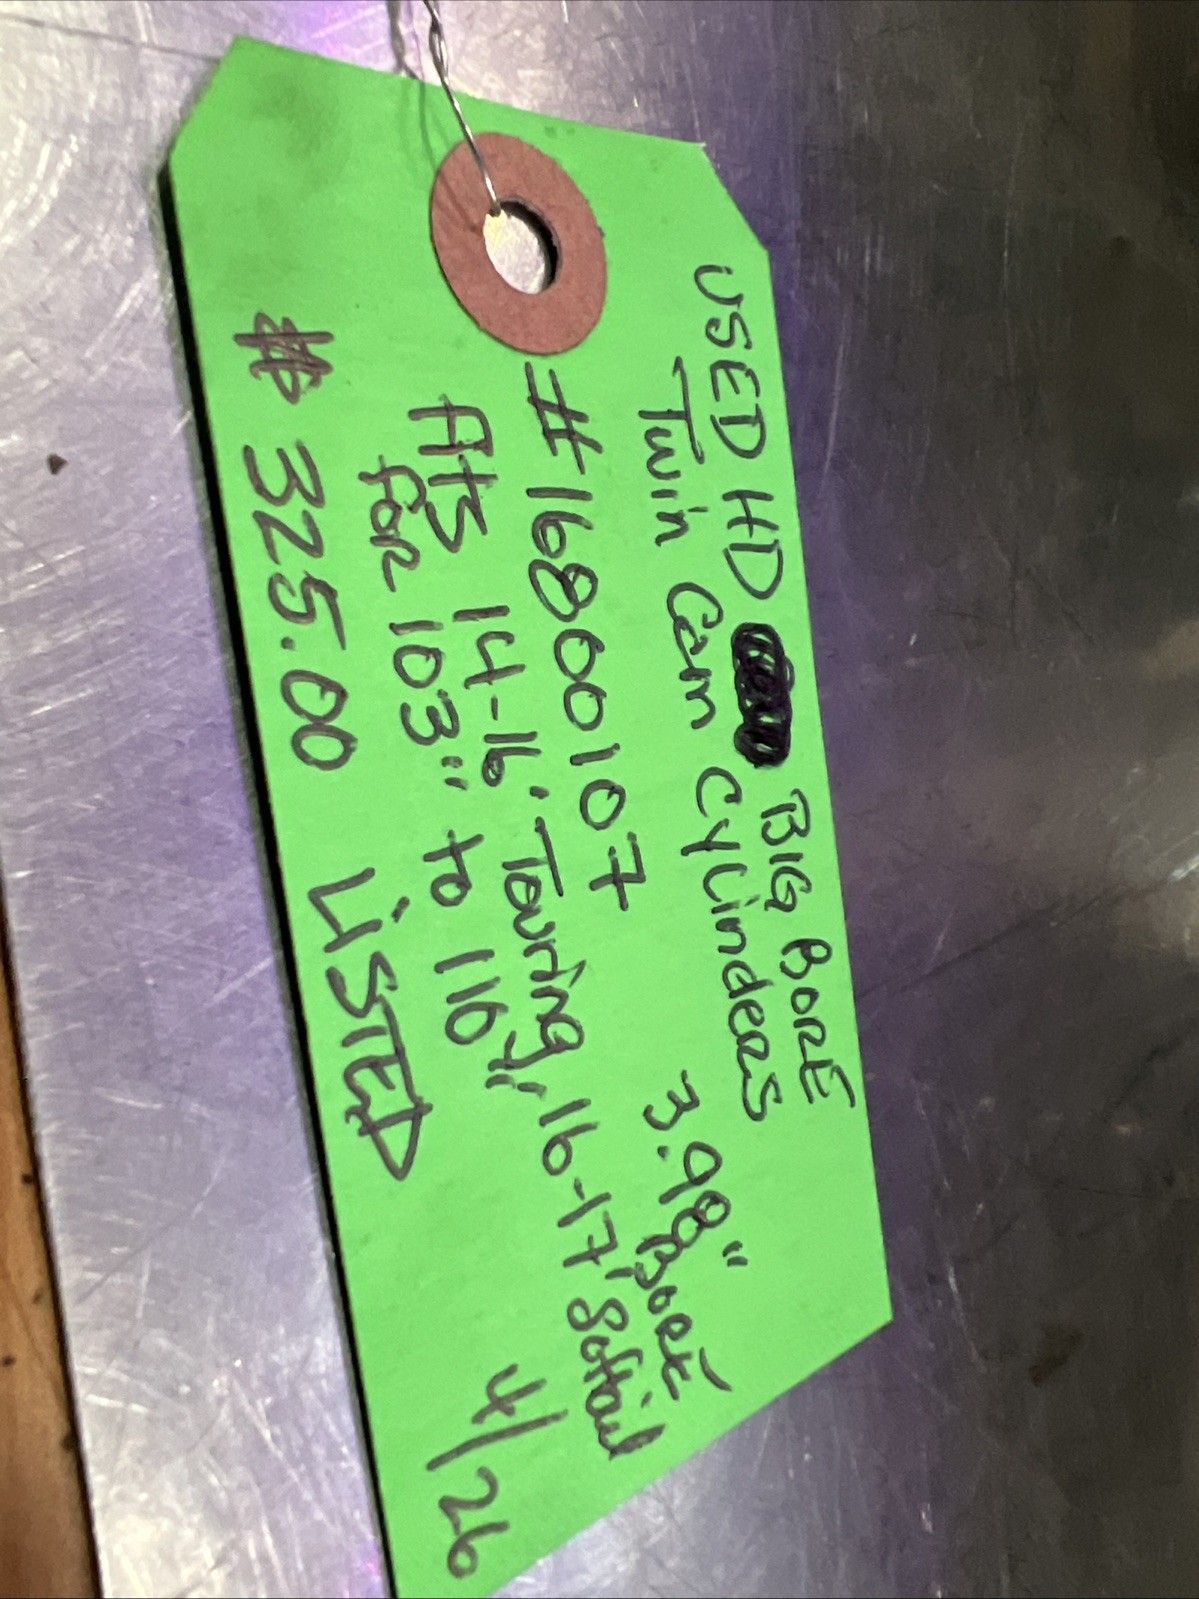 USED HD BIG BORE
Twin Cam CyLinders 3.98" BORE
#16800107
fits 14-16. Touring, 16-17 Softail
for 103" to 110"
$ 325.00 LiSTED 4/26